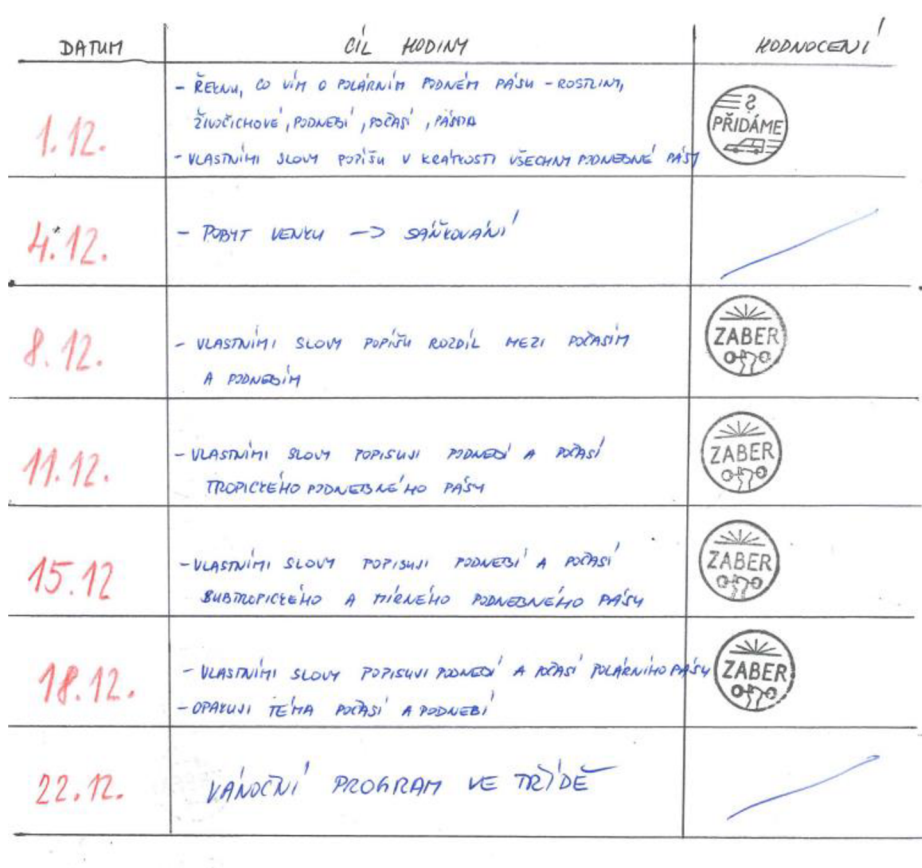 DATUM CÍL HODINY HODNOCENÍ
1.12.
- ŘEKNU, CO VÍM O POLÁRNÍM PODNEM PÁSU - ROSTLINY,
ŽIVOČICHOVÉ, PODNEBÍ, POČASÍ, PÁSMA
- VLASTNÍMI SLOVY POPÍŠU V KRÁTKOSTI VŠECHNY PODNEBNÉ PÁSY
PŘIDÁME
4.12.
- POBYT VENKU -> SÁŇKOVÁNÍ
8.12.
- VLASTNÍMI SLOVY POPÍŠU ROZDÍL MEZI POČASÍM
A PODNEBÍM
ZABER
11.12.
- VLASTNÍMI SLOVY POPISUJI PODNEBÍ A POČASÍ
TROPICKÉHO PODNEBNÉHO PÁSU
ZABER
15.12
- VLASTNÍMI SLOVY POPISUJI PODNEBÍ A POČASÍ
SUBTROPICKÉHO A MÍRNÉHO PODNEBNÉHO PÁSU
ZABER
18.12.
- VLASTNÍMI SLOVY POPISUJI PODNEBÍ A POČASÍ POLÁRNÍHO PÁSU
- OPAKUJI TÉMA POČASÍ A PODNEBÍ
ZABER
22.12.
VÁNOČNÍ PROGRAM VE TŘÍDĚ